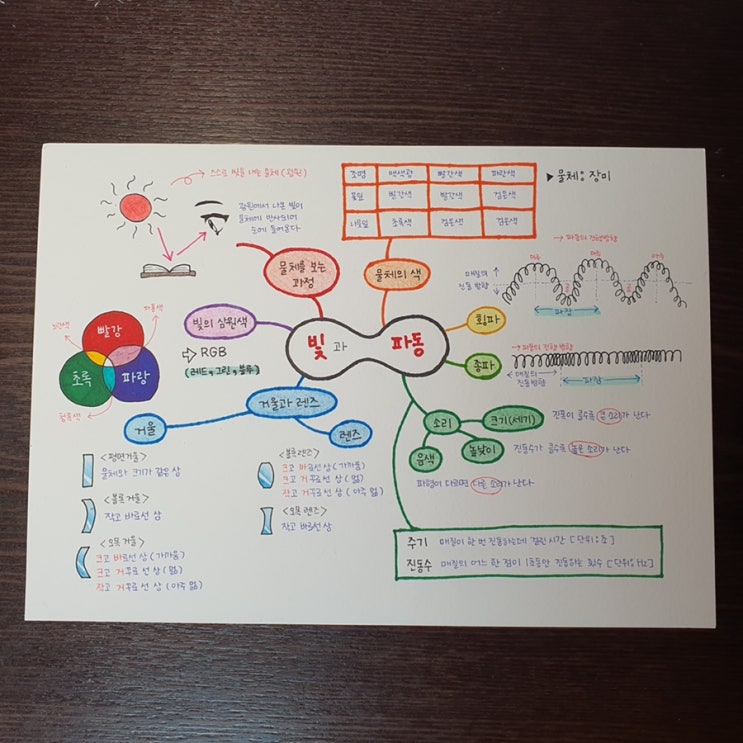 스스로 빛을 내는 물체 (광원)
광원에서 나온 빛이
물체에 반사되어
눈에 들어온다
물체를 보는
과정
조명 백색광 빨간색 파란색
꽃잎 빨간색 빨간색 검은색
나뭇잎 초록색 검은색 검은색
▶물체: 장미
물체의 색
빛의 삼원색
⇨ RGB
(레드, 그린, 블루)
자홍색
빨강
초록
파랑
청록색
빛과 파동
횡파
→ 파동의 진행방향
매질의
진동 방향
마루
마루
마루
골
골
파장
종파
→ 파동의 진행 방향
매질의
진동방향
파장
거울과 렌즈
거울
<평면거울>
물체와 크기가 같은 상
<볼록 거울>
작고 바로선 상
<오목 거울>
크고 바로선 상 (가까움)
크고 거꾸로 선 상 (멂)
작고 거꾸로 선 상 (아주 멂)
렌즈
<볼록렌즈>
크고 바로선 상 (가까움)
크고 거꾸로선 상 (멂)
작고 거꾸로선 상 (아주 멂)
<오목 렌즈>
작고 바로선 상
소리
크기(세기)
진폭이 클수록 큰 소리가 난다
높낮이
진동수가 클수록 높은 소리가 난다
음색
파형이 다르면 다른 소리가 난다
주기 매질이 한 번 진동하는데 걸린 시간 [단위:초]
진동수 매질의 어느 한 점이 1초동안 진동하는 횟수 [단위:Hz]